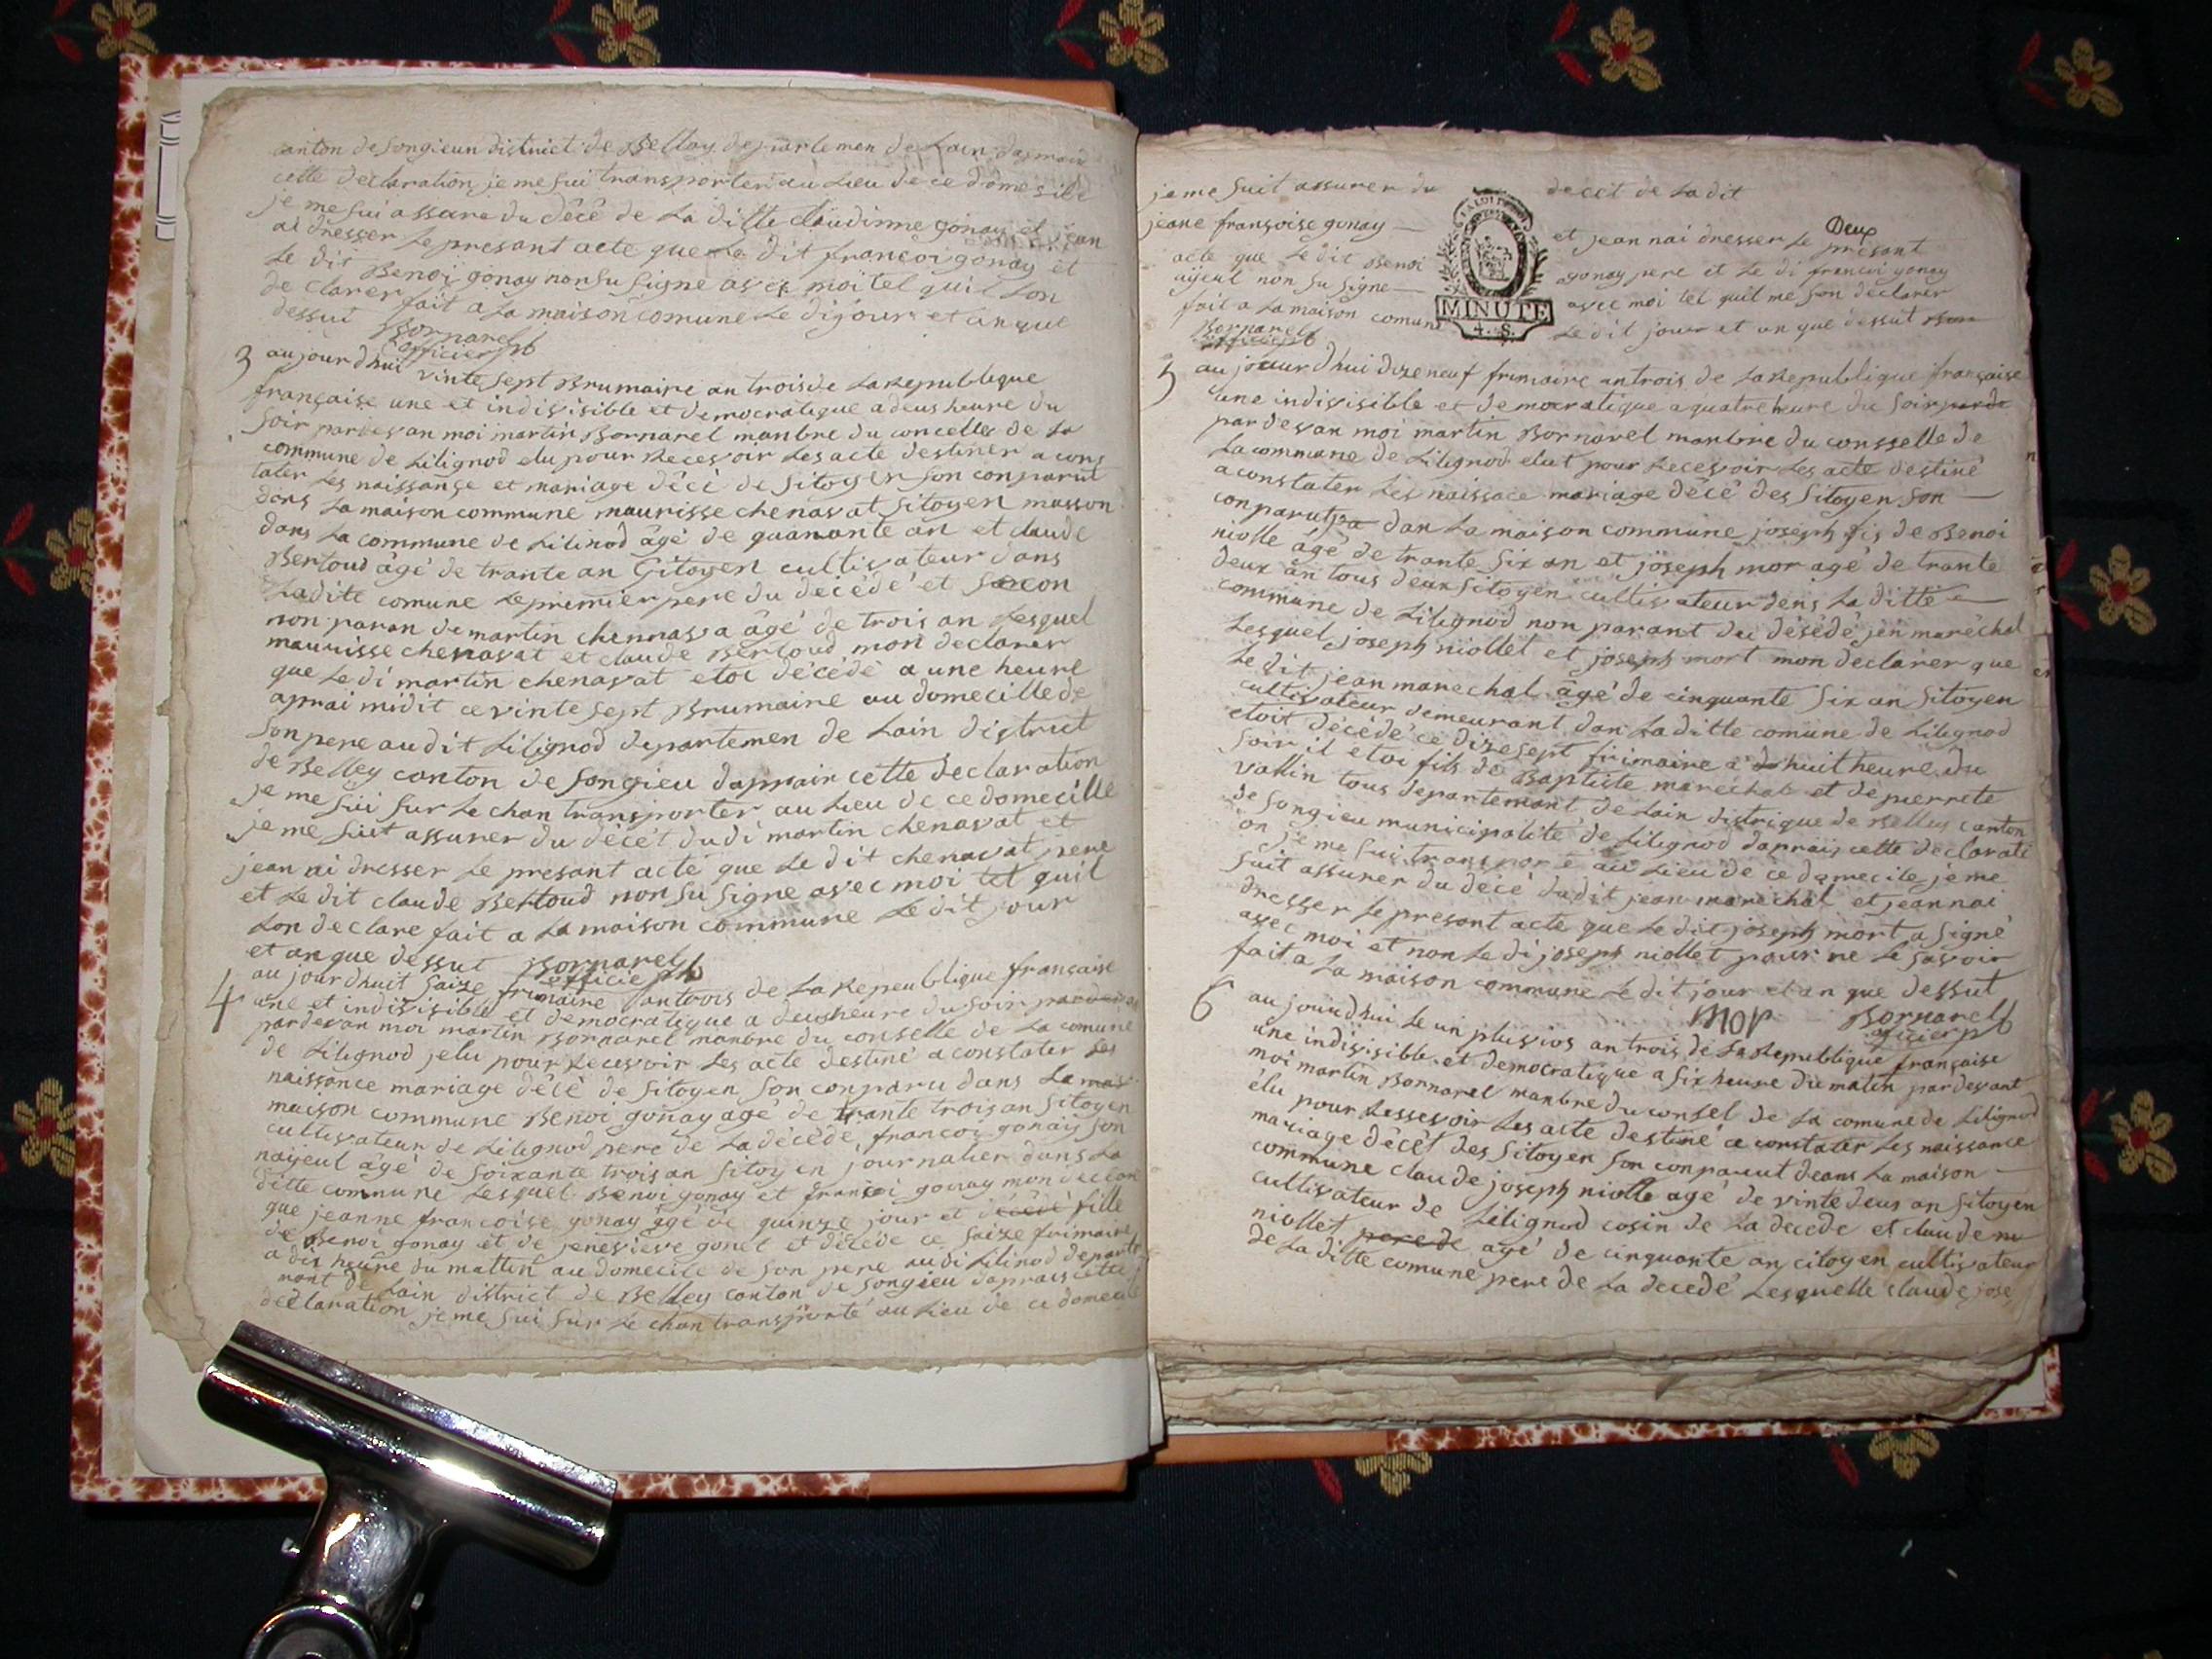 canton de songieun district de Belley departemen de Lain daprais
cette declaration je me sui transporter au Lieu de ce domesile
je me sui assure du décé de La ditte claudinne gonay et jean
ai dresser Le presant acte que Le dit françoi gonay et
Le dit Benoi gonay non su signe avec moi tel quil Lon
declarer fait a La maison comune Le di jour et an que
dessut Bornarel
officier pb
3 aujourdhui vinte sept Brumaire an trois de La Republique
française une et indivisible et democratique a deus heure du
soir pardevan moi martin Bornarel manbre du concelle de La
commune de Lilignod elu pour Recevoir Les acte destiner a cons
tater Les naissance et mariage décé de sitoyen son conparut
dans La maison commune maurisse chenavat sitoyen masson
dans La commune de Lilinod âgé de quarante an et claude
Bertoud âgé de trante an Citoyen cultivateur dans
Ladite comune Le premier pere du décédé et secon
non paran de martin chennava âgé de trois an Lesquel
maurisse chenavat et claude Bertoud mon declarer
que Le di martin chenavat etoi décédé a une heure
aprai midit ce vinte sept Brumaire au domecille de
son pere audit Lilignod departemen de Lain district
de Belley canton de songieu daprair cette declaration
je me sui sur Le chan transporter au Lieu de ce domecille
je me suit assurer du décét du di martin chenavat et
jean nai dresser Le presant acte que Le dit chenavat pere
et Le dit claude Bertoud non su signe avec moi tel quil
Lon declare fait a La maison commune Le dit jour
et an que dessut Bornarel
officie pb
4 au jourdhuit saize frimaire antrois de La Repeublique française
une et indivisible et democratique a deus heure du soir pardevan
pardevan moi martin Bornarel manbre du conselle de La comune
de Lilignod jelu pour Recevoir Les acte destiné a constater Les
naissance mariage décé de sitoyen son conparu dans La mais
maison commune Benoi gonay agé de trante trois an sitoyen
cultivateur de Lilignod pere de La décédé, françoi gonay son
nayeul âgé de soixante trois an sitoyen journalier dans La
ditte commune Lesquel Benoi gonay et françoi gonay mon declare
que jeanne françoise gonay âgé de quinze jour et décédé fille
de Benoi gonay et de jenevieve gonet et décédé ce saize frimaire
a dis heure du mattin au domecile de son pere audi Lilinod departe
mant de Lain district de Belley canton de songieu daprais cette
déclaration je me sui sur Le chan transporté au Lieu de ce domecile
je me suit assurer du decet de La dit
Deux
jeane françoise gonay — et jean nai dresser Le presant
acte que Le dit Benoi gonay pere et Le di françoi gonay
aijeul non su signe — avec moi tel quil me son declarer
fait a La maison comune Le dit jour et an que dessut Bor
Bornarel
officier pb
MINUTE
4. S.
5 au jouurdhui dizeneuf frimaire antrois de La Republique française
une indivisible et democratique a quatre heure du soir parde
pardevan moi martin Bornarel manbre du consselle de
La commune de Lilignod elut pour Recevoir Les acte destiné
a constater Les naissace mariage décé des sitoyen son —
conparut pa dan La maison commune joseph fis de Benoi
niolle âgé de trante six an et joseph mor agé de trante
deux an tous deux sitoyen cultivateur dens La ditte —
commune de Lilignod non parant du désédé jen maréchal
Lesquel joseph niollet et joseph mort mon declarer que
Le dit jean marechal âgé de cinquante six an sitoyen
cultivateur demeurant dan La ditte comune de Lilignod
etoit décédé ce dizesept frimaire a huit heure du
soir il etoi fils de Baptiste maréchal et de pierrete
vallin tous departemant de Lain distrique de Belley canton
de songieu municipalité de Lilignod daprais cette declarati
on je me suis transporté au Lieu de ce domecile je me
suit assurer du décé dudit jean maréchal et jean nai
dresser Le presant acte que Le dit joseph mort a signé
avec moi et non Le di joseph niollet pour ne Le savoir
fait a La maison commune Le dit jour et an que dessut
mor Bornarel
officier pb
6 au jourdhui Le un pluvios an trois de La Republique française
une indivisible et democratique a six heure du matin pardevant
moi martin Bornarel manbre du consel de La comune de Lilignod
élu pour Ressevoir Les acte destiné a constater Les naissance
mariage décét des sitoyen son conparut deans La maison —
commune claude joseph niolle agé de vinte deus an sitoyen
cultivateur de Lilignod cosin de La decede et claude ni
niollet pere de agé de cinquante an citoyen cultivateur
de La ditte comune pere de La decedé Lesquelle claude jose